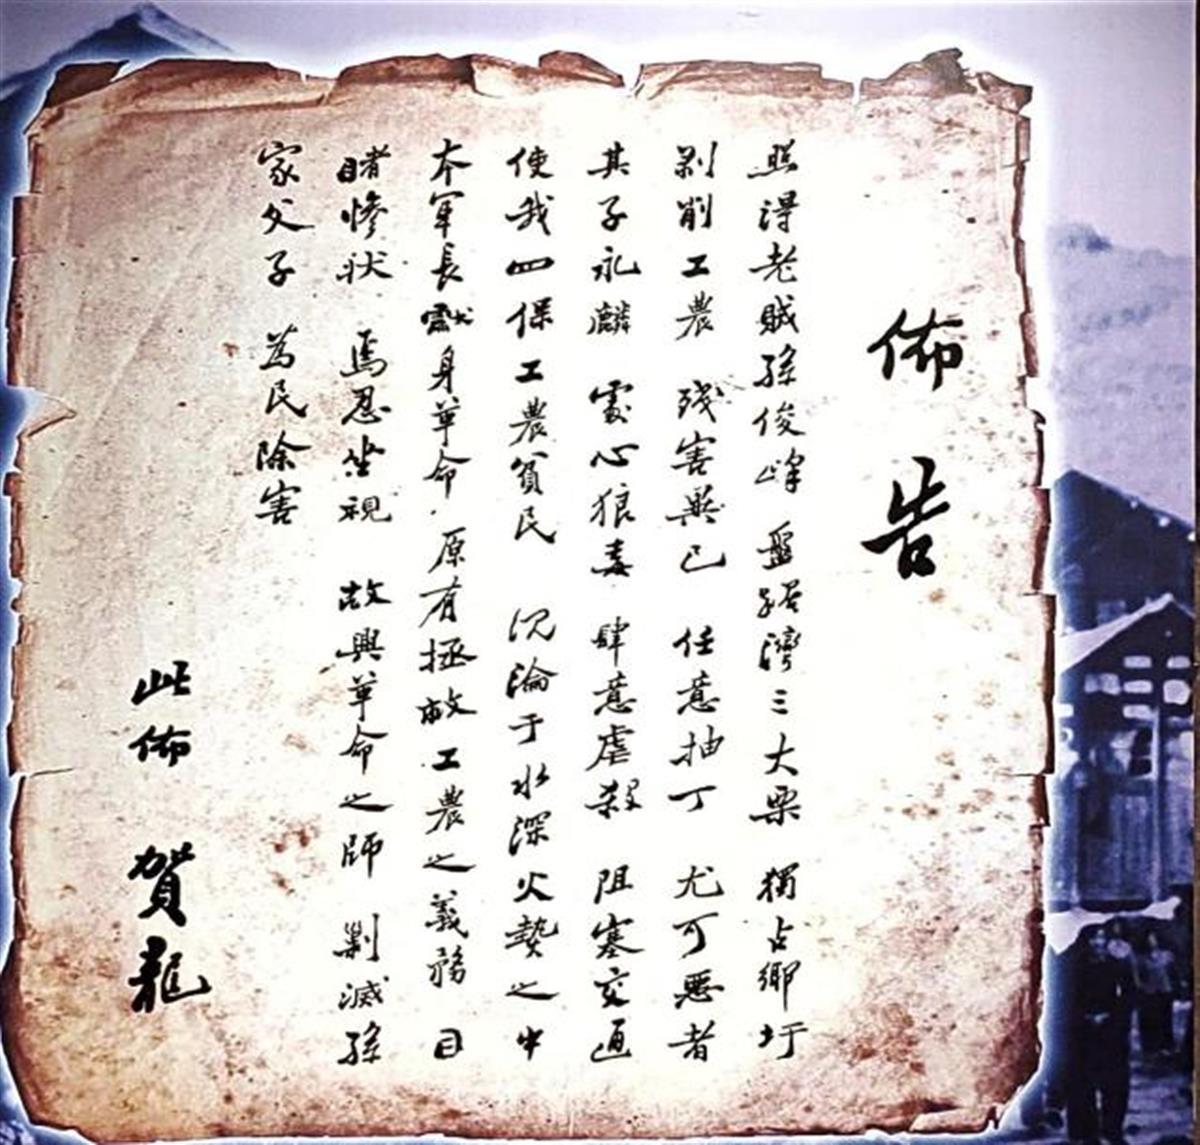 佈告
照得老賊孫俊峰 盤踞灣三大栗 獨占鄉圩
剥削工農 殘害無已 任意抽丁 尤可惡者
其子永麟 處心狼毒 肆意虐殺 阻塞交通
使我四保工農貧民 沉淪于水深火熱之中
本軍長獻身革命 原有拯救工農之義務 目
睹慘狀 焉忍坐視 故興革命之師 剿滅孫
家父子 為民除害
此佈 賀龍